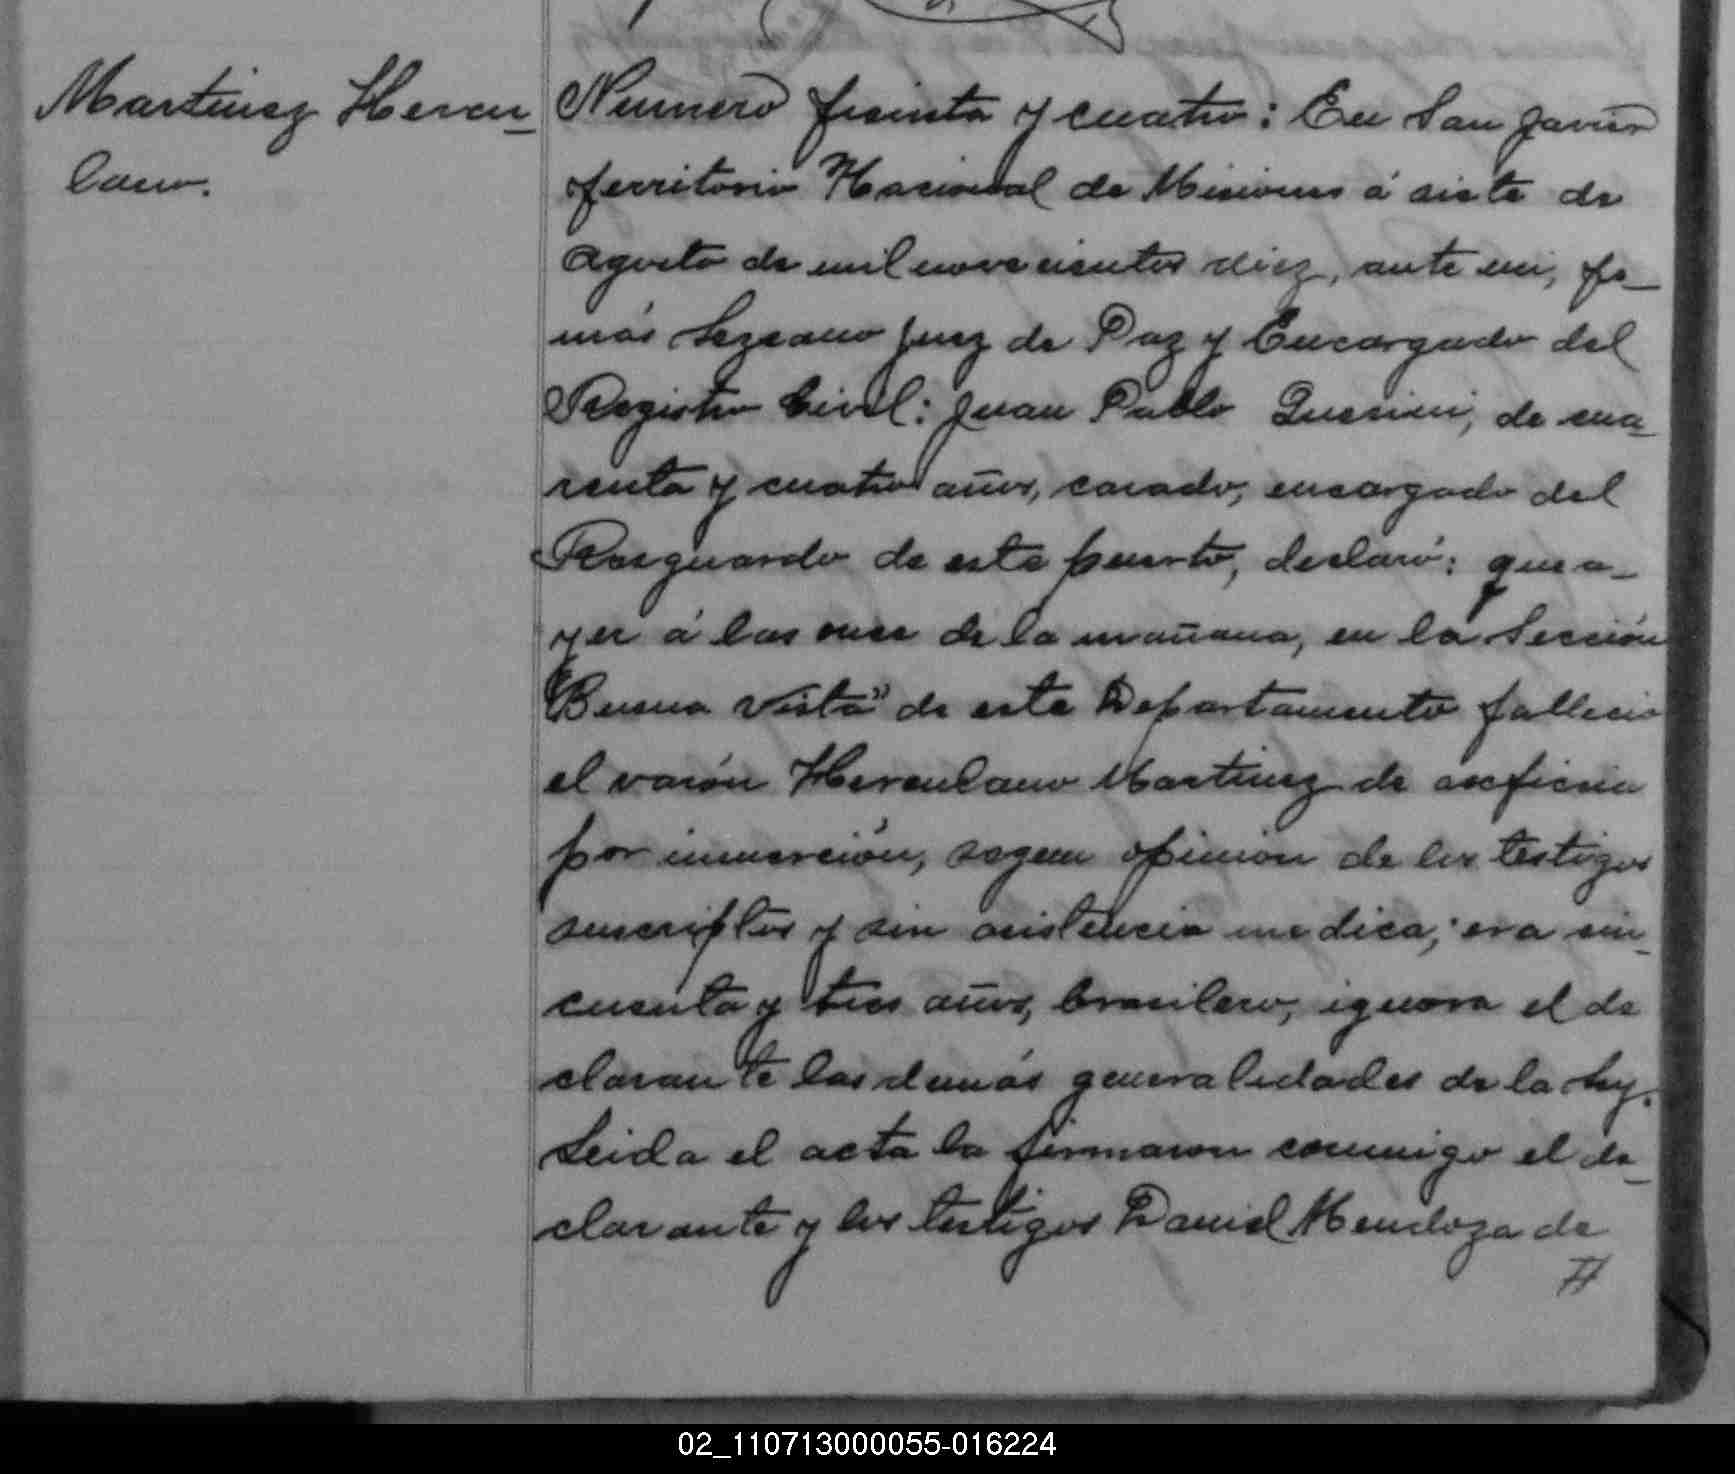 Martinez Hercu-
lano.
Numero treinta y cuatro: En San Javier
territorio Nacional de Misiones á siete de
Agosto de mil novecientos diez, ante mi, To-
más Lezcano Juez de Paz y Encargado del
Registro Civil: Juan Pablo Guerini, de cua-
renta y cuatro años, casado, encargado del
Resguardo de este puerto, declaró: que a-
yer á las once de la mañana, en la Sección
"Buena Vista" de este Departamento fallecio
el varón Herculano Martinez de asficsia
por inmerción, segun opinion de los testigos
suscriptos y sin asistencia medica; era cin-
cuenta y tres años, brasilero, ignora el de
clarante las demás generalidades de la Ley.
Leida el acta la firmaron conmigo el de-
clarante y los testigos Daniel Mendoza de
//
02_110713000055-016224